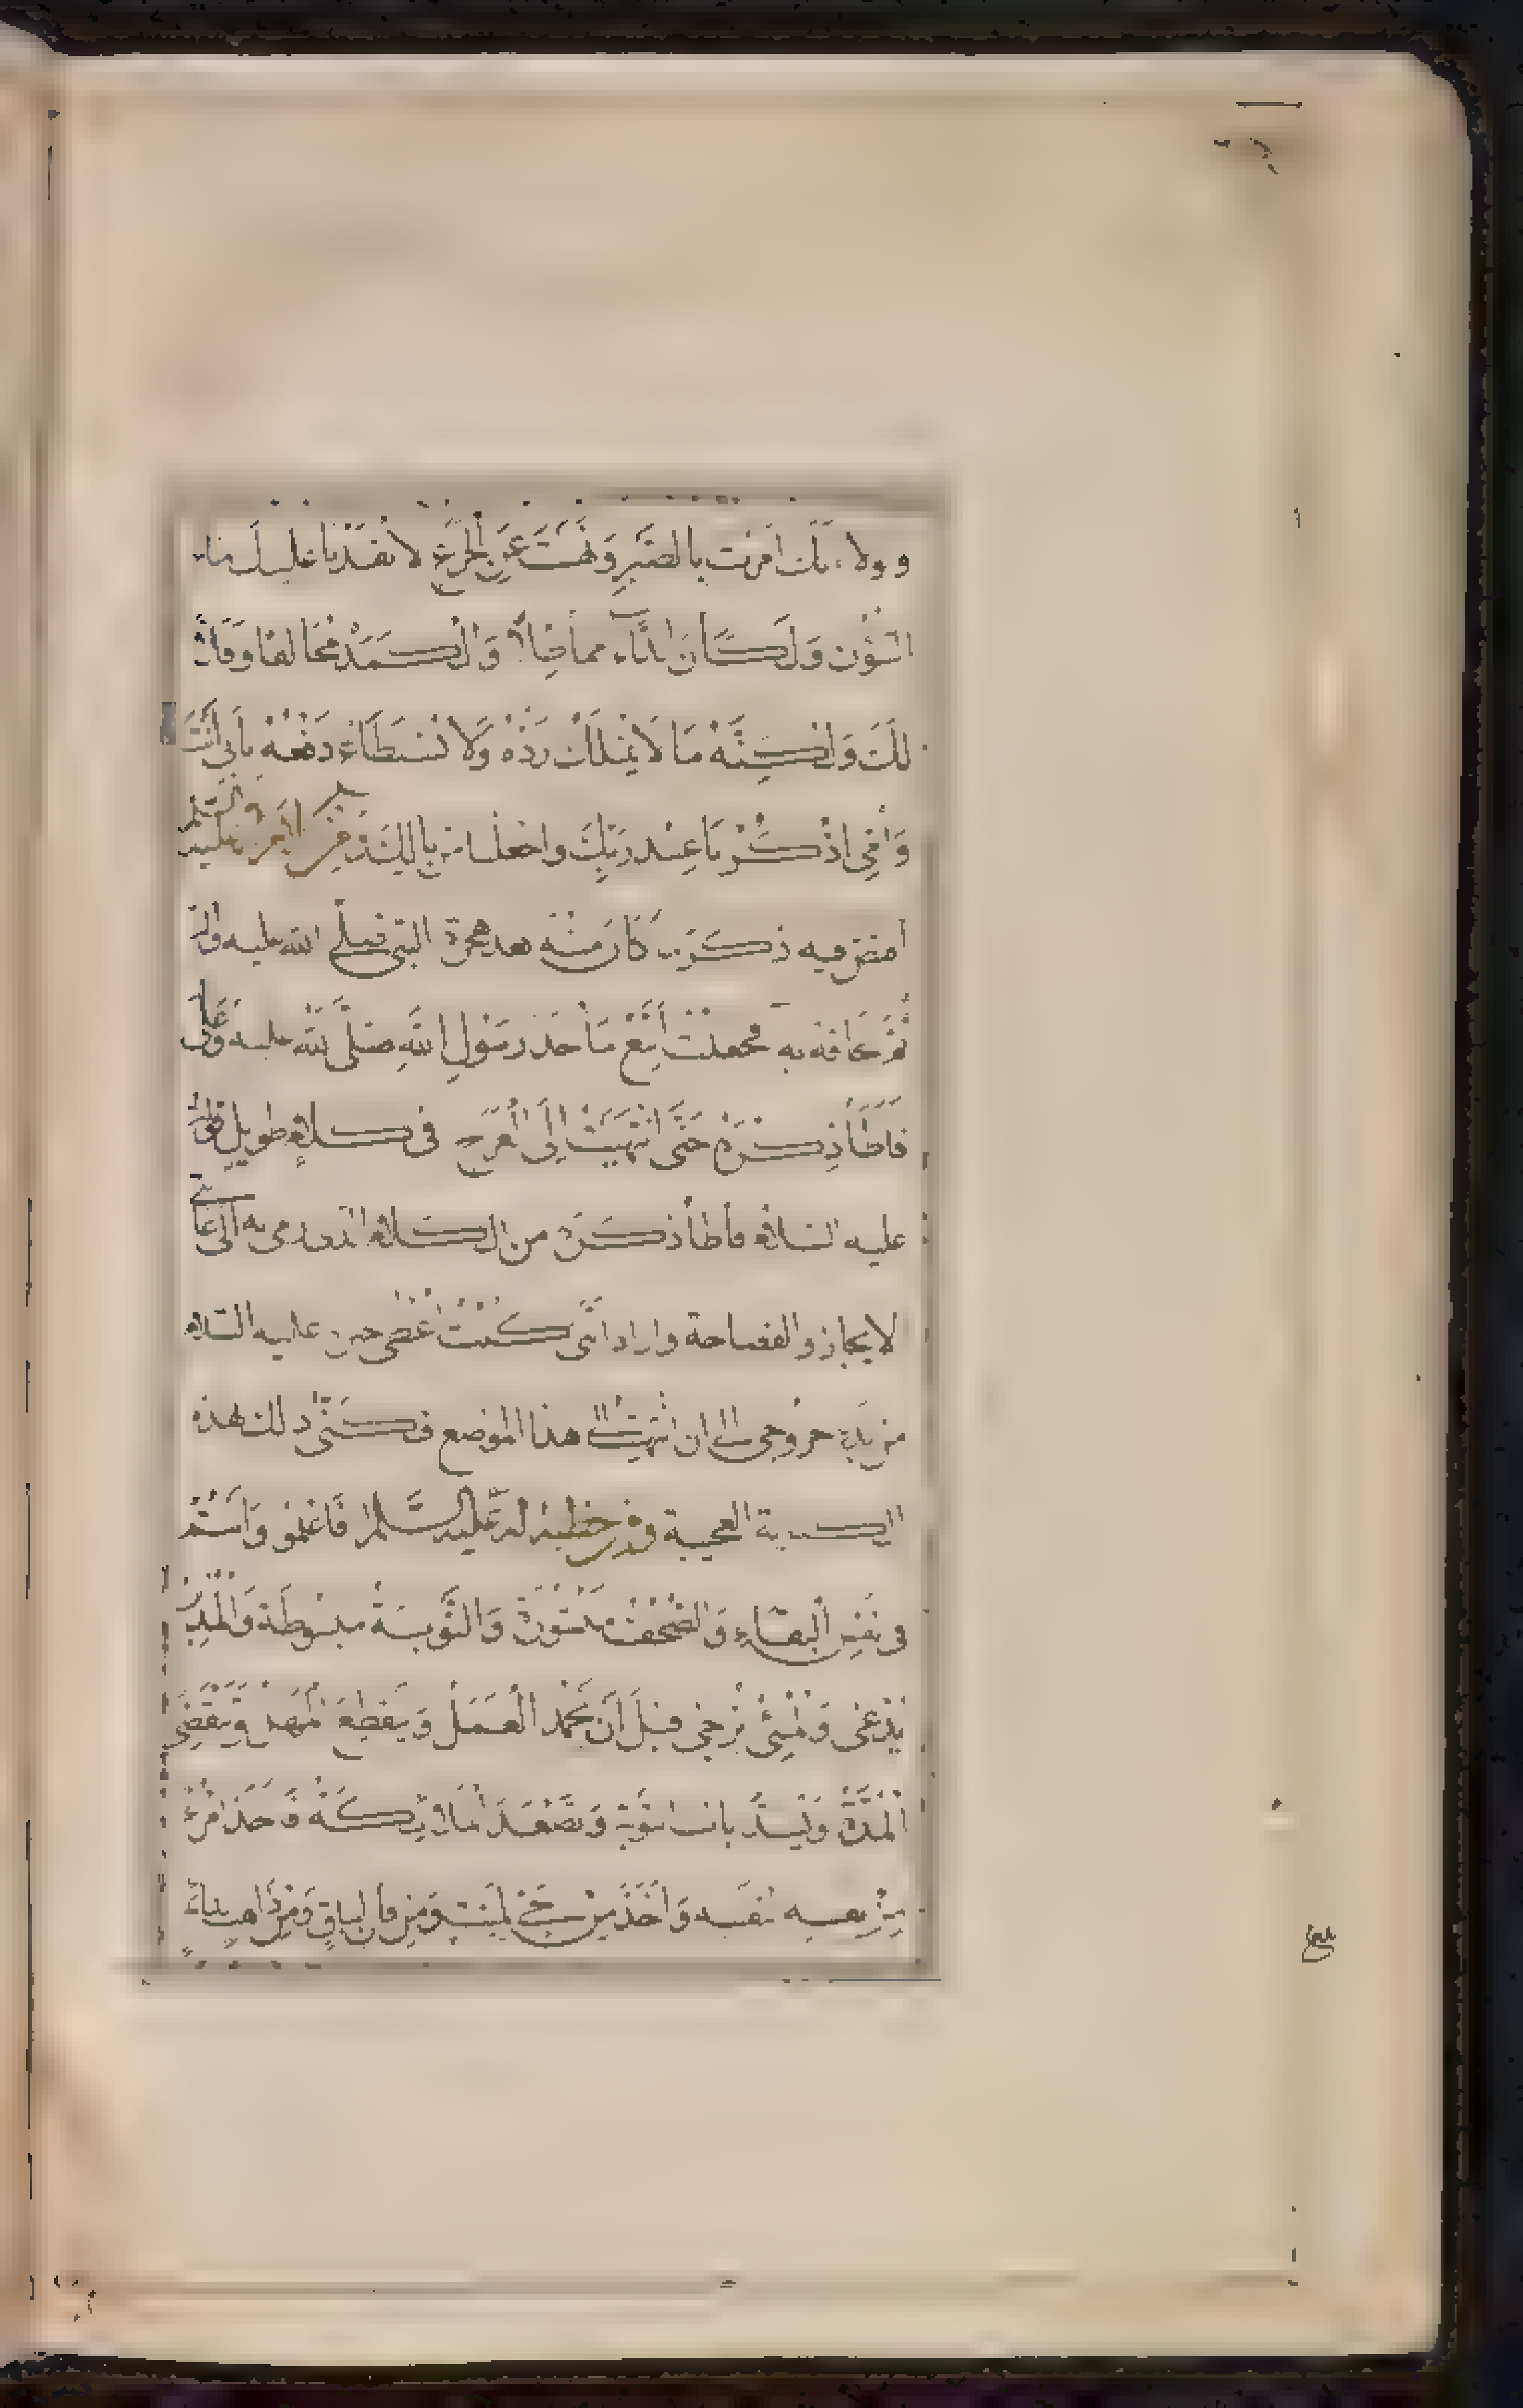 ولولا انك امرت بالصبر ونهيت عن الجزع لانفدنا عليك ماء
الشؤن ولكان الداء مماطلا والكمد محالفا وقلا
لك ولكنه ما لا يملك رده ولا نستطاع دفعه بابى انت
وامى اذكرنا عند ربك واجعلنا من بالك ومن كلام له عليه السلم
اقتص فيه ذكر ما كان منه بعد هجرة النبى صلى الله عليه واله
ثم لحاقه به فجعلت اتبع ماخذ رسول الله صلى الله عليه وعلى
فاطأ ذكره حتى انتهيت الى العرج فى كلام طويل قوله
عليه السلام فاطأ ذكره من الكلام الذى رمى به الى غايتى
الايجاز والفصاحة واراد انى كنت اعطى خبره عليه السلام
من بدء خروجى الى ان انتهيت الى هذا الموضع فكنى ذلك بهذه
الكناية العجيبة ومن خطبة له عليه السلم فاعملو وانتم
فى نفس البقاء والصحف منشورة والتوبة مبسوطة والمدبر
يدعى والمسئ يرجى قبل ان يخمد العمل وينقطع المهل وينقضى
المدة ويسد باب التوبة وتصعد الملائكة فاخذ امرء
من نفسه لنفسه واخذ من حى لميت ومن فان لباق ومن ذاهب لدائم
بلغ